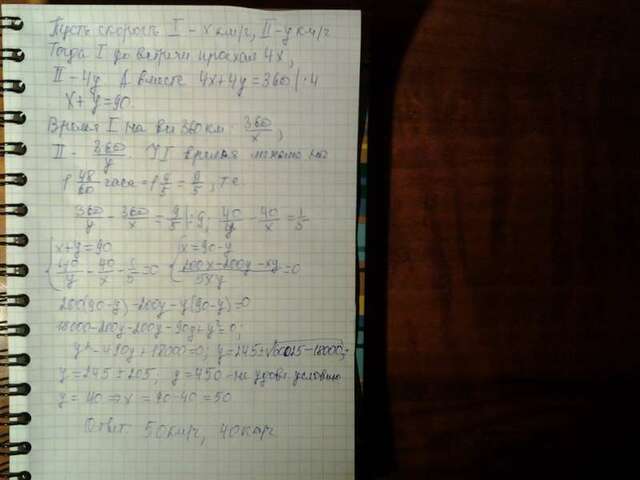 Пусть скорость I - x км/ч, II - y км/ч
Тогда I до встречи проехал 4x,
II - 4y. А вместе 4x+4y=360 | :4
x+y=90.
Время I на все 360 км 360/x,
II - 360/y. II время на
1 48/60 часа = 1 4/5 = 9/5, т.е.
360/y - 360/x = 9/5 |:9; 40/y - 40/x = 1/5
{x+y=90 {x=90-y
{40/y - 40/x - 1/5 = 0 {(200x-200y-xy)/5xy = 0
200(90-y)-200y-y(90-y)=0
18000-200y-200y-90y+y²=0;
y²-490y+18000=0; y=245±√60025-18000;
y=245±205, y=450 - не удовл. условию
y=40 ⇒ x=90-40=50
Ответ: 50км/ч, 40км/ч